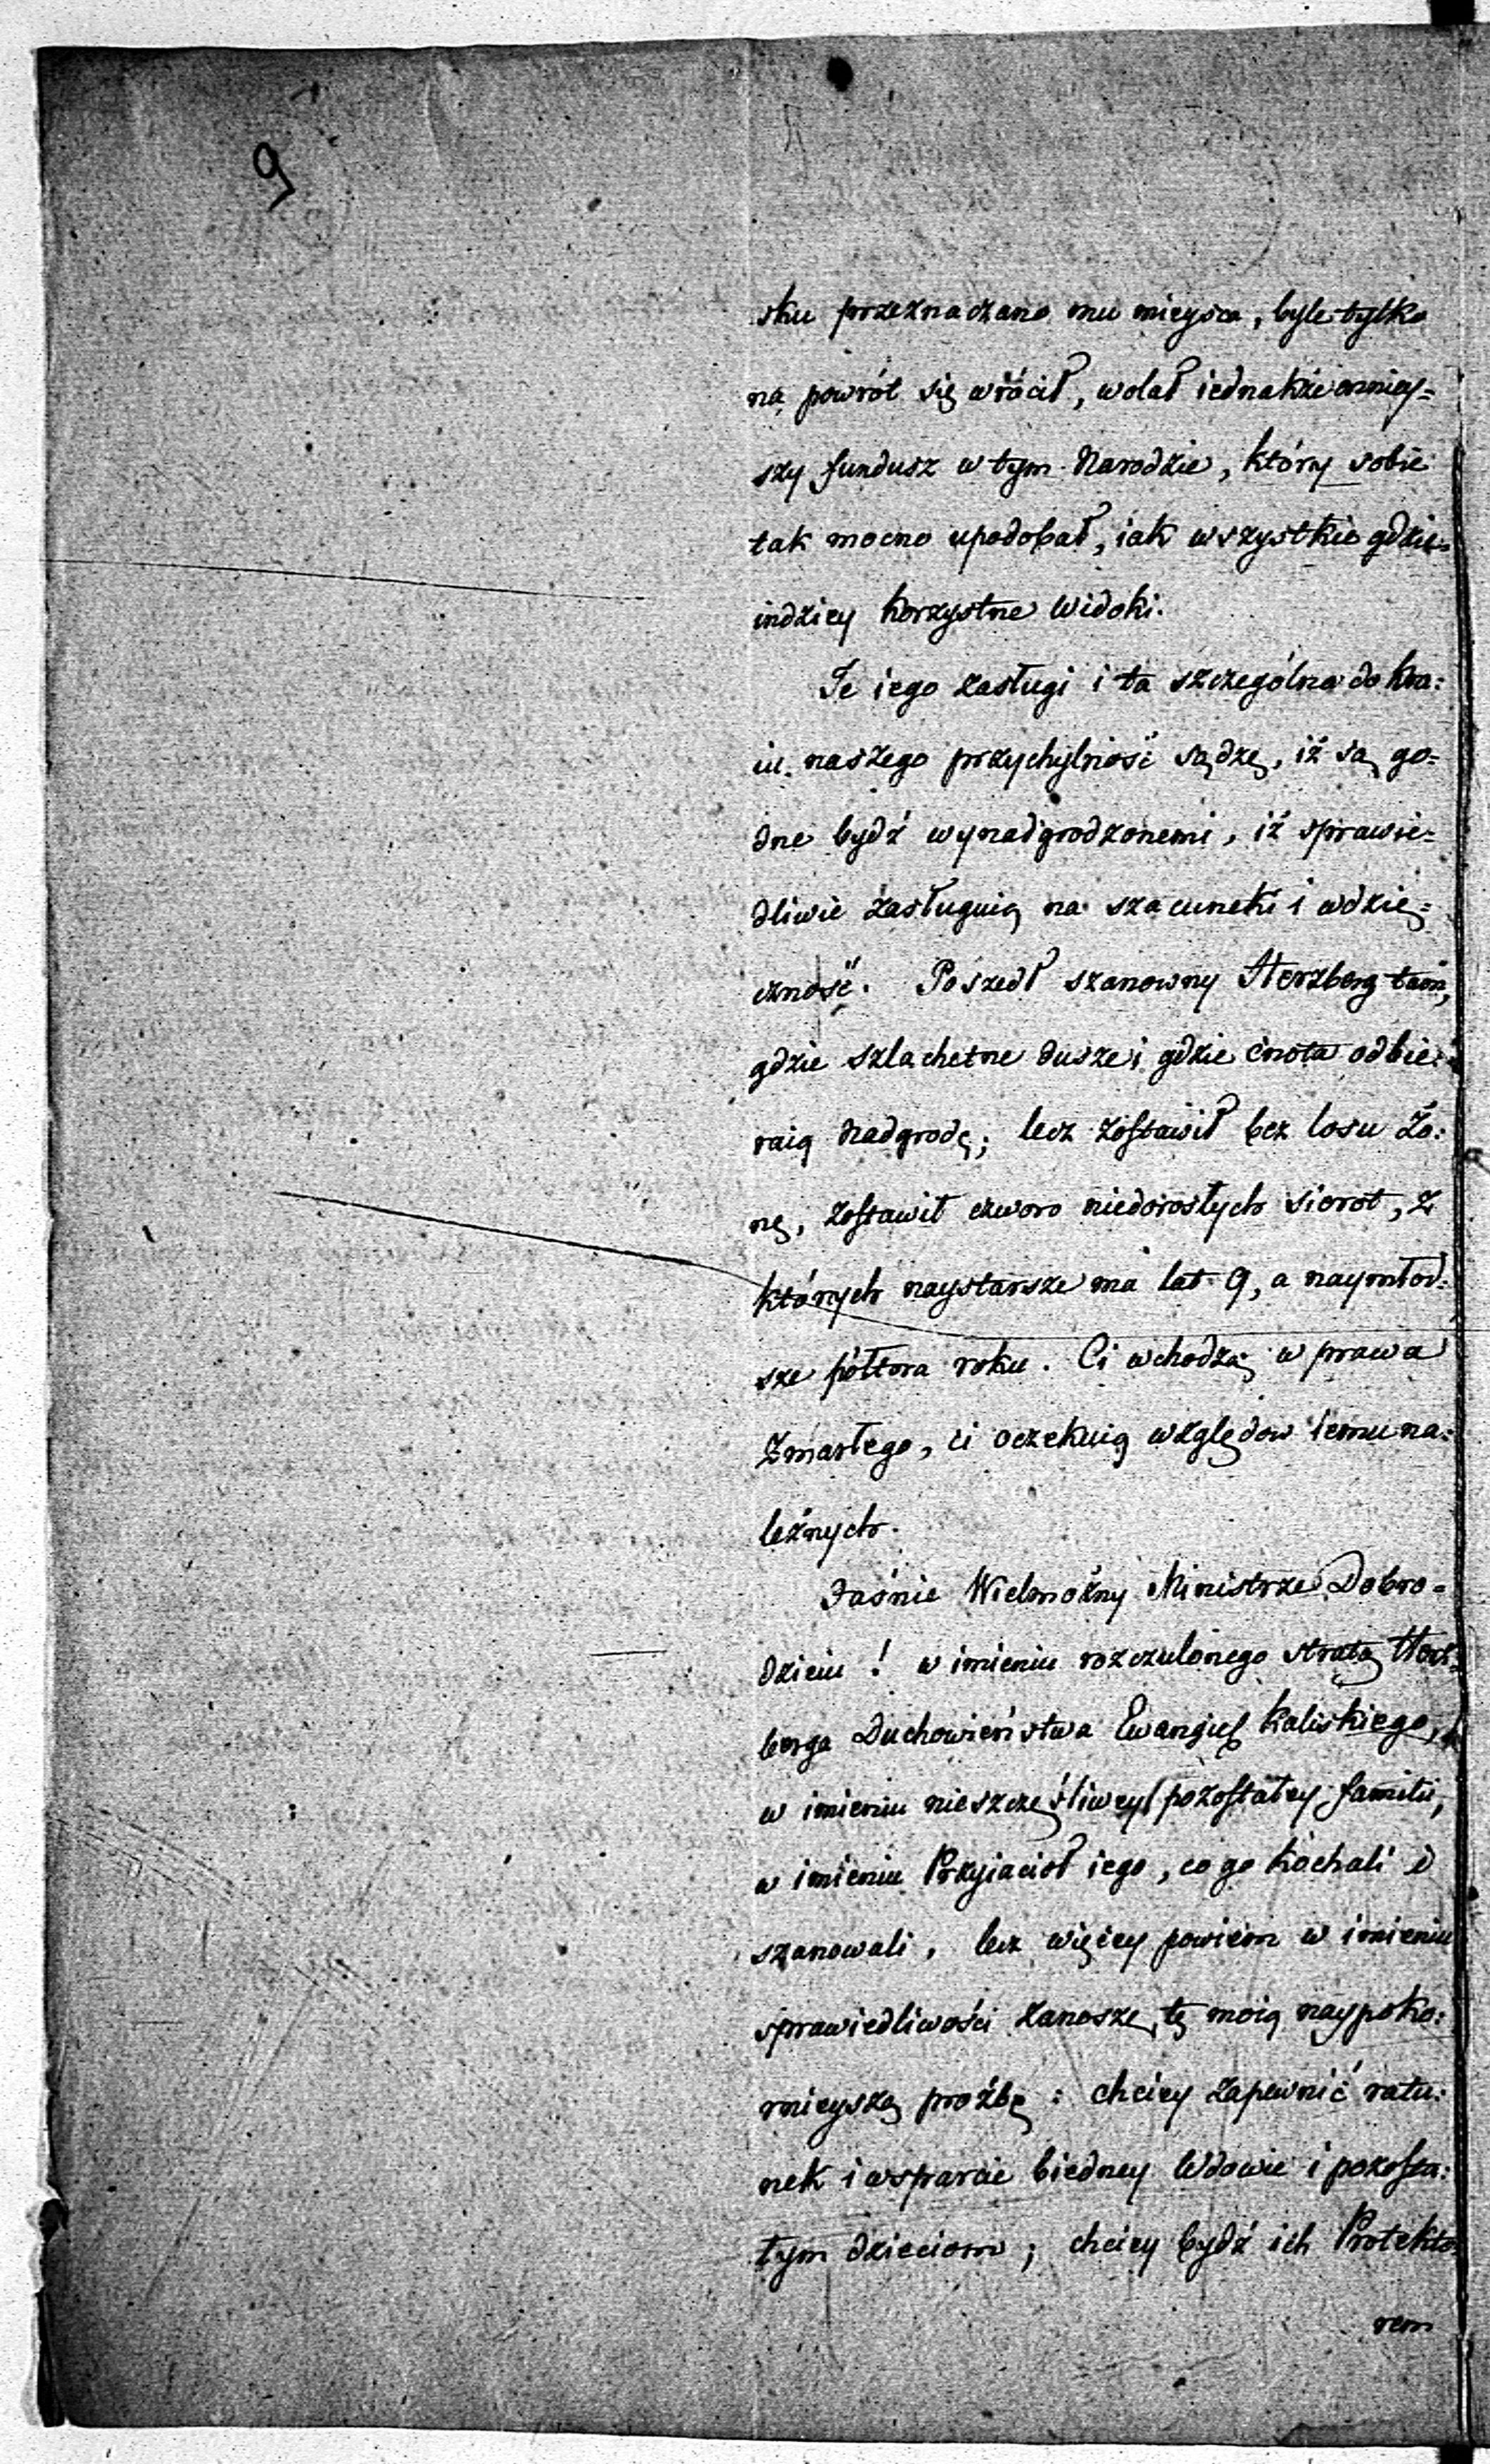 9
sku przeznaczano mu mieysca, byle tylko
na powrót się wrócił, wolał iednakże mniey=
szy fundusz w tym Narodzie, który sobie
tak mocno upodobał, iak wszystkie gdzie=
indziey korzystne widoki.
Te iego zasługi i ta szczególna do kra:
iu naszego przychylność sądzę, iż są go=
dne bydź wynadgrodzonemi, iż sprawie=
dliwie zasługuią na szacunek i wdzię=
czność. Poszedł szanowny Herzberg tam,
gdzie szlachetne dusze i gdzie cnota odbie:
raią nadgrodę; lecz zostawił bez losu Żo:
nę, zostawił czworo niedorosłych sierot, z
których naystarsze ma lat 9, a naymłod:
sze półtora roku. Ci wchodzą w prawa
Zmarłego, ci oczekuią względow iemu na:
leżnych.
Jaśnie Wielmożny Ministrze Dobro=
dzieiu! w imieniu rozczulonego stratą Herz=
berga Duchowieństwa Ewangiel Kaliskiego,
w imieniu nieszczęśliwey pozostałey familii,
w imieniu Przyiaciół iego, co go kochali i
szanowali, lecz więcey powiem w imieniu
sprawiedliwości zanoszę tę moią naypoko:
rnieyszą proźbę: chciey zapewnić ratu:
nek i wsparcie biedney Wdowie i pozosta:
łym dzieciom; chciey bydź ich Protekto
rem